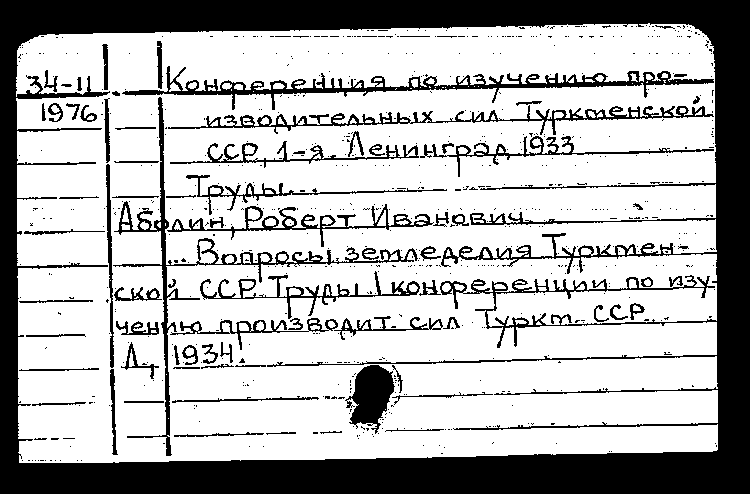 34-11 Конференция по изучению про-
1976 изводительных сил Туркменской
ССР, 1-я. Ленинград, 1933
Труды...
Аболин, Роберт Иванович.
... Вопросы земледелия Туркмен-
ской ССР. Труды I конференции по изу-
чению производит. сил Туркм. ССР.
Л., 1934.